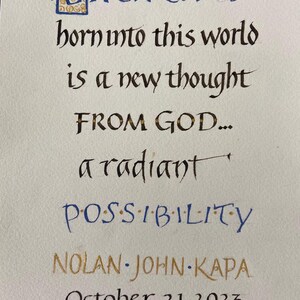 born into this world
is a new thought
FROM GOD...
a radiant
P·O·S·S·I·B·I·L·I·T·Y
NOLAN·JOHN·KAPA
October 21 2023